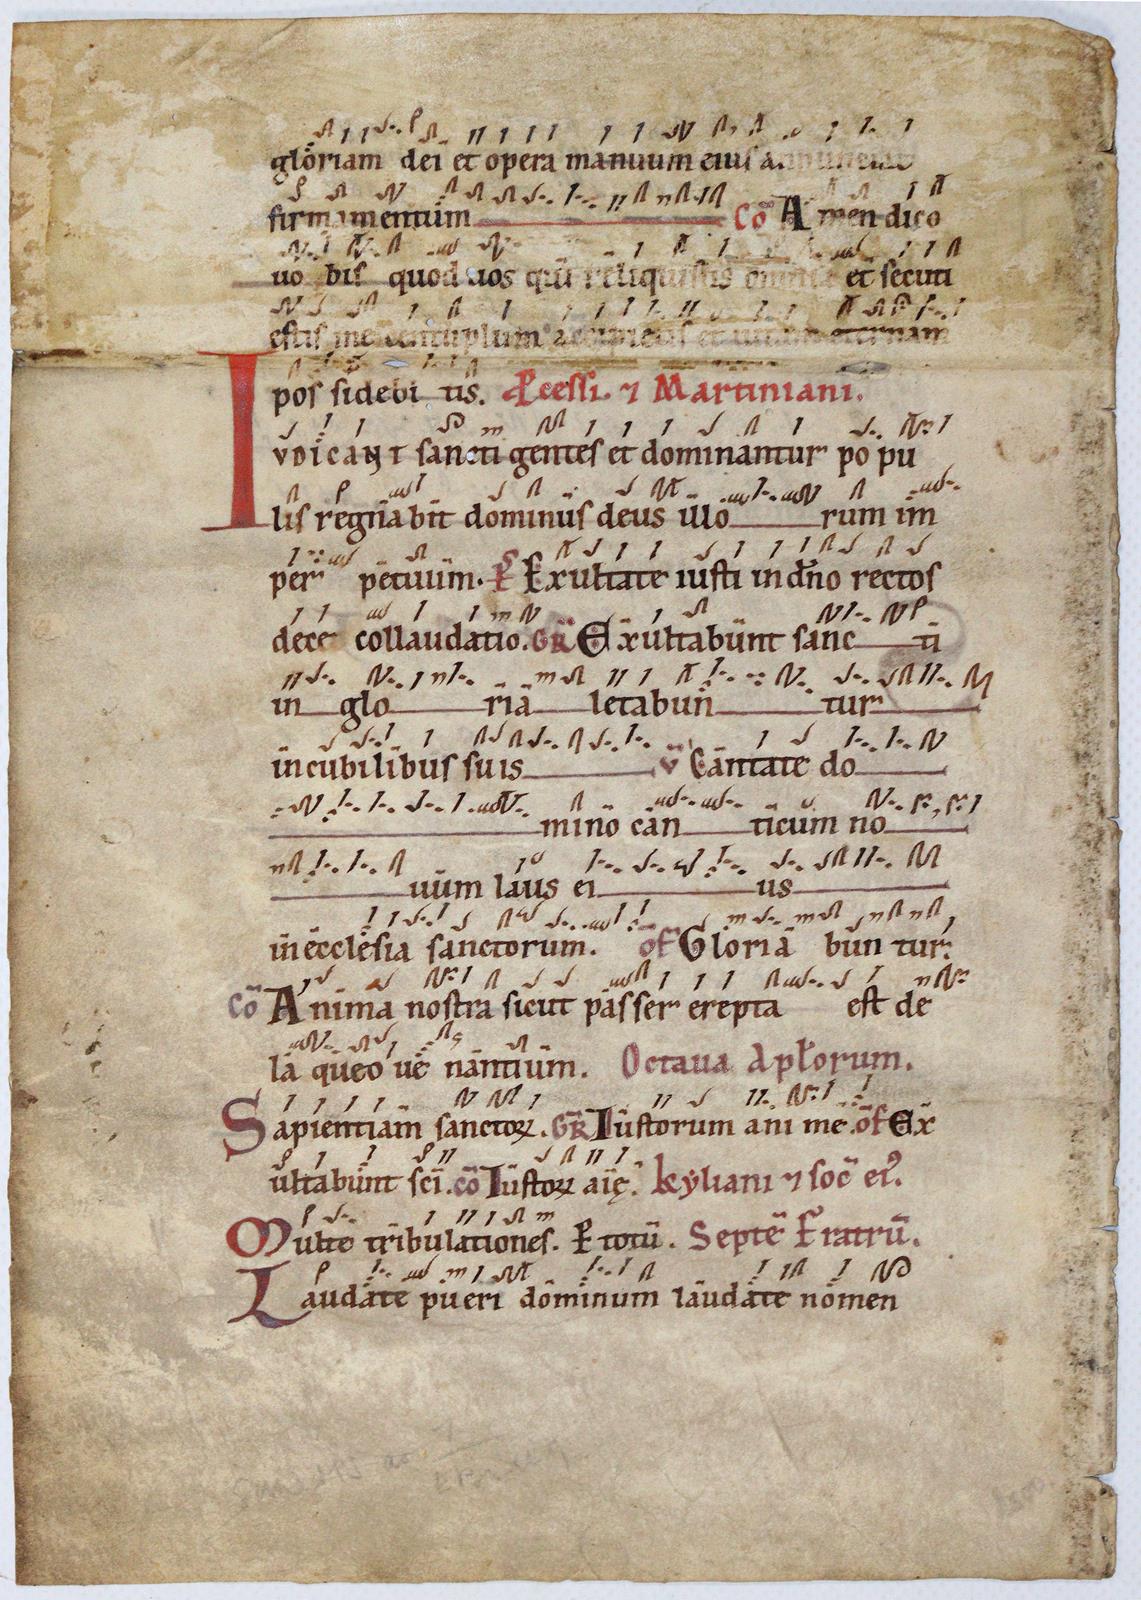 gloriam dei et opera manuum eius annunciat
firmamentum Cō Amen dico
uo bis quod uos qui reliquistis omnia et secuti
estis me centuplum accipietis et uitam eternam
pos sidebi tis. Ꝓcessi ⁊ Martiniani.
IVDICANT sancti gentes et dominantur po pu
lis regna bit dominus deus illo rum im
per petuum. Ps̄ Exultate iusti in dn̄o rectos
dece collaudatio. GR̄ Exultabunt sanc ti
in glo ria letabun tur
in cubilibus suis v̄ Cantate do
mino can ticum no
uum laus ei us
in ecclesia sanctorum. of̄ Gloria bun tur.
Cō Anima nostra sicut passer erepta est de
la queo ue nantium. Octaua Apl̄orum.
Sapientiam sanctoꝝ. GR̄ Iustorum ani me. of̄ Ex
ultabunt sc̄i. cō Iustoꝝ aīę. kyliani ⁊ soc̄ eiꝰ.
Multe tribulationes. P totū. Septē Fratrū.
Laudate pueri dominum laudate nomen